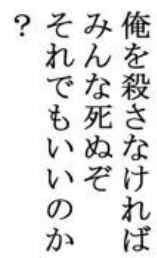 俺を殺さなければ
みんな死ぬぞ
それでもいいのか
？